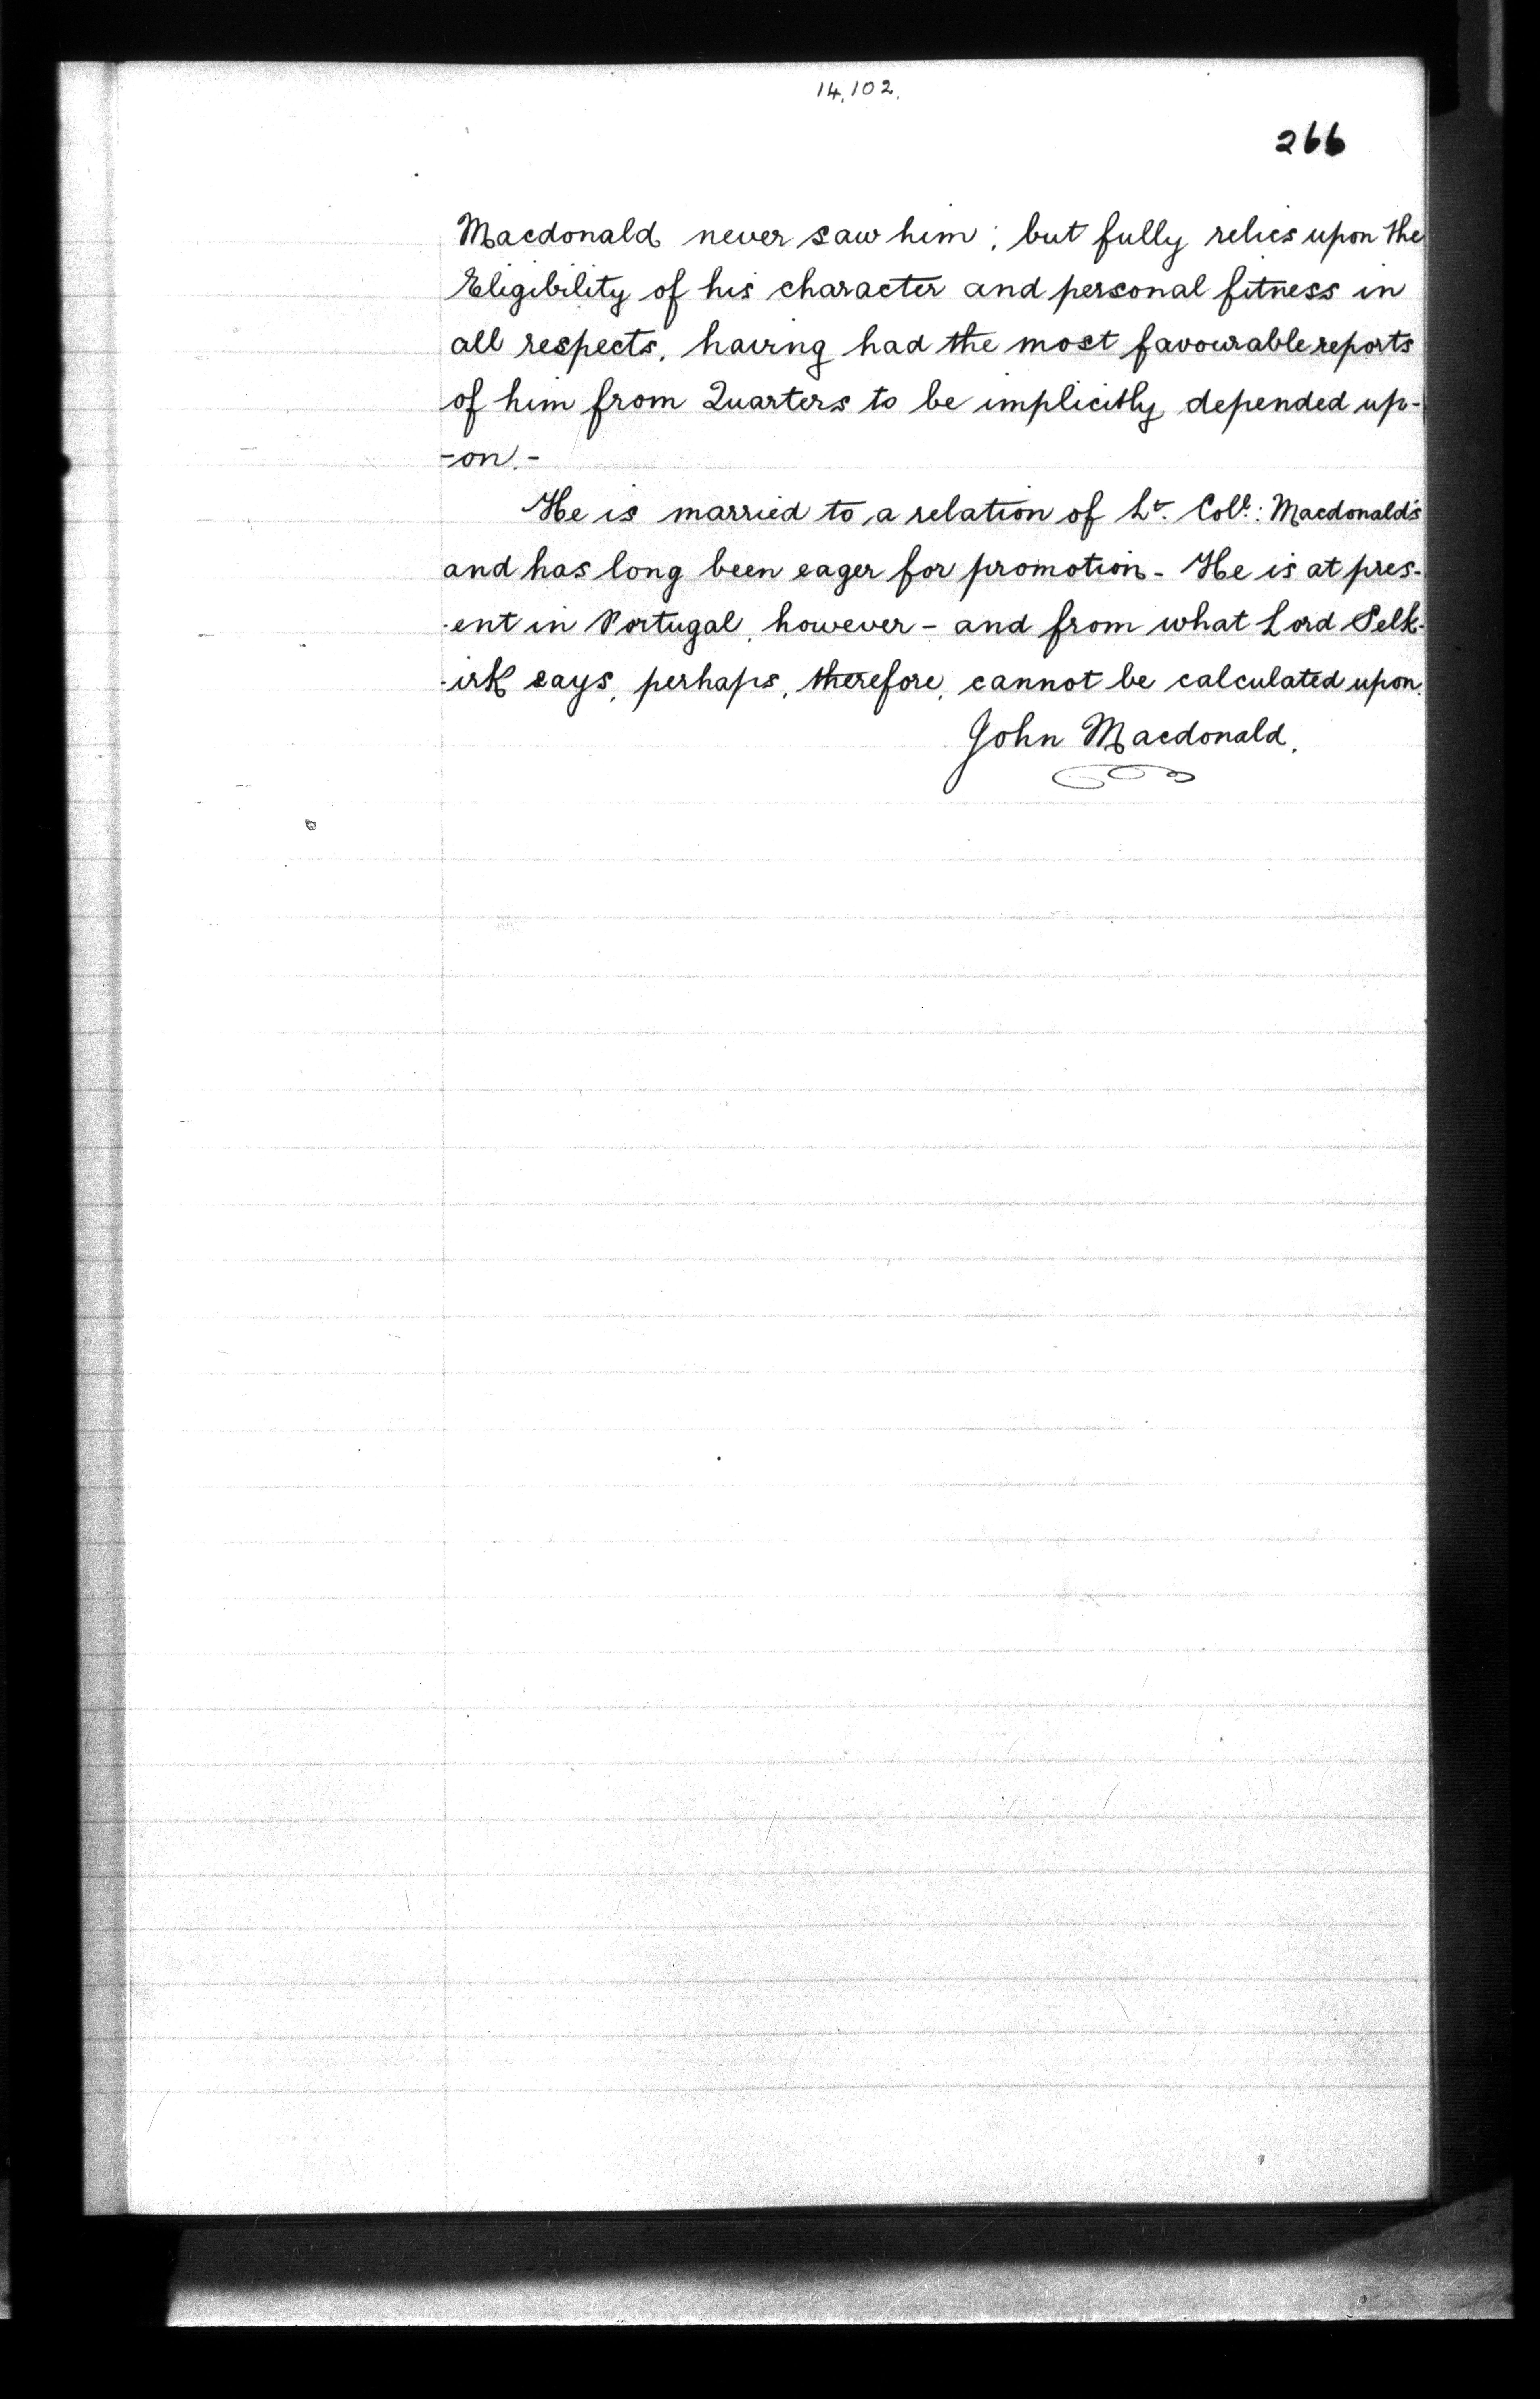 14,102.
266
Macdonald never saw him; but fully relies upon the
Eligibility of his character and personal fitness in
all respects, having had the most favourable reports
of him from Quarters to be implicitly depended up-
-on.-
He is married to a relation of Lt. Coll: Macdonald's
and has long been eager for promotion - He is at pres-
-ent in Portugal, however - and from what Lord Selk-
-irk says, perhaps, therefore, cannot be calculated upon.
John Macdonald.